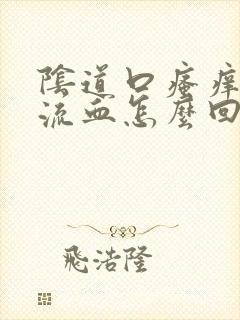 陰道口瘙痒
流血怎麼回
飛浩隆